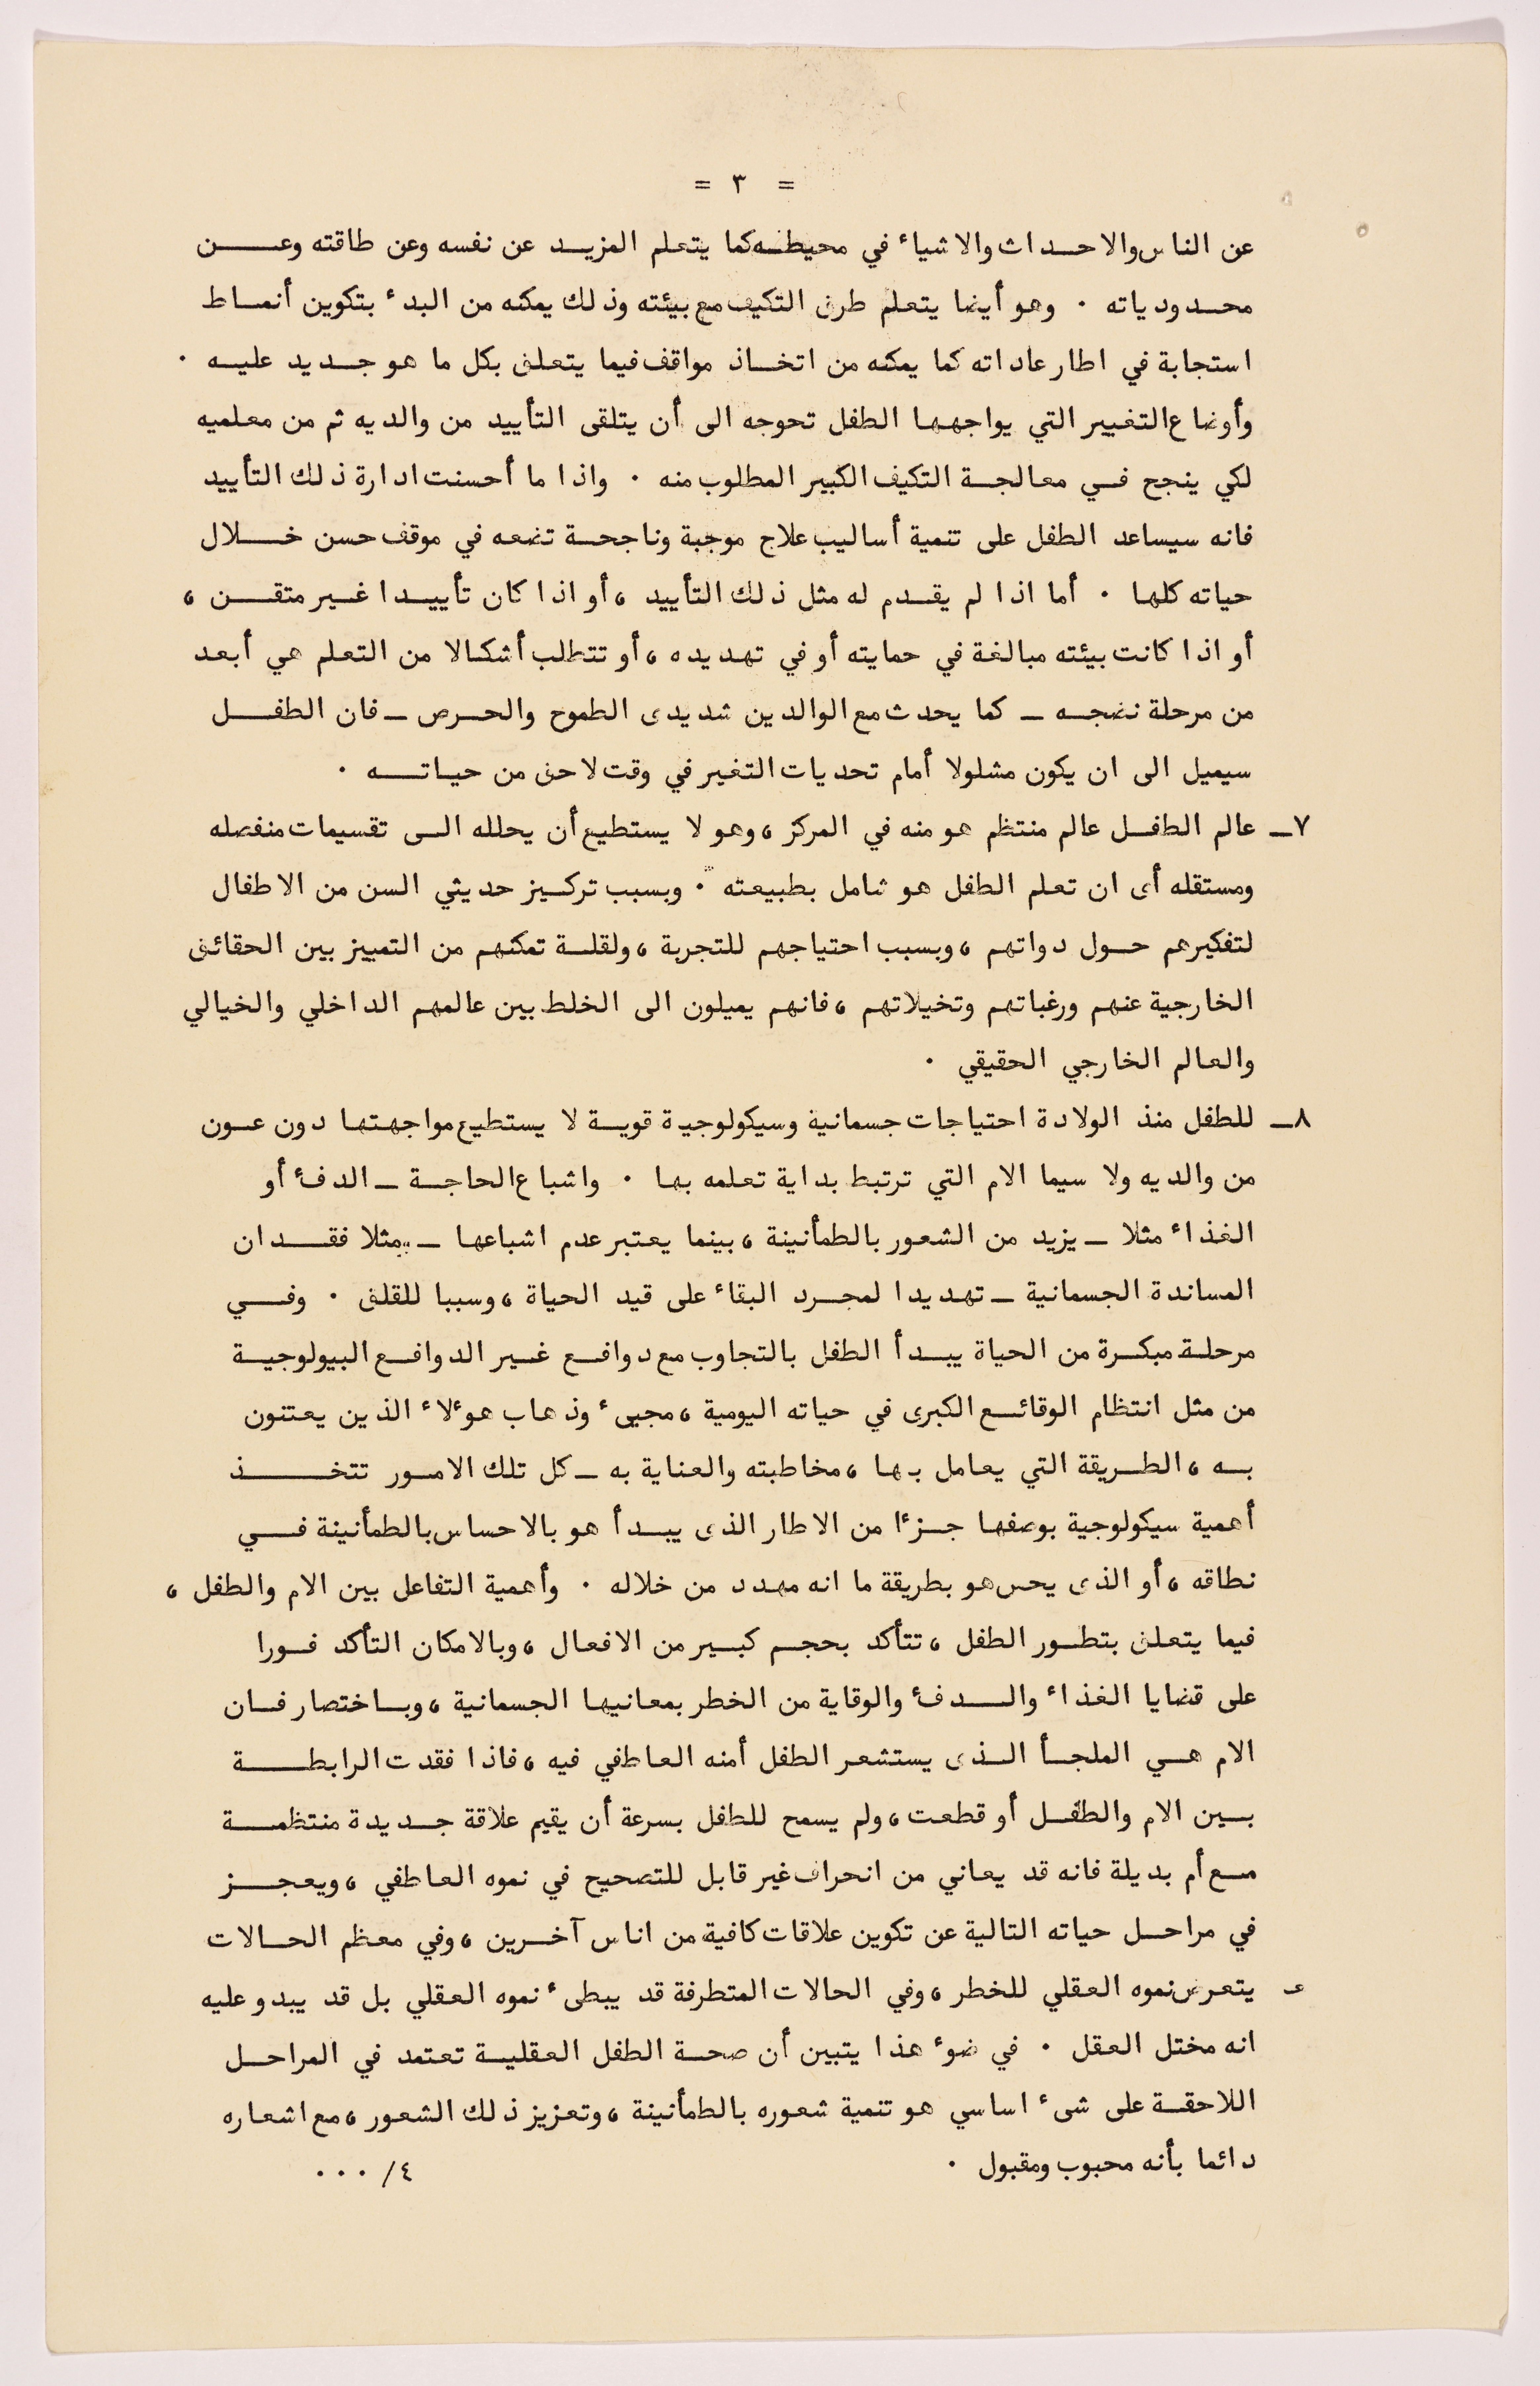 = ٣ =
عن الناس والاحداث والاشياء في محيطه كما يتعلم المزيد عن نفسه وعن طاقته وعن
محدودياته ٠ وهو أيضا يتعلم طرق التكيف مع بيئته وذلك يمكنه من البدء بتكوين أنماط
استجابة في اطار عاداته كما يمكنه من اتخاذ مواقف فيما يتعلق بكل ما هو جديد عليه ٠
وأوضاع التغيير التي يواجهها الطفل تحوجه الى أن يتلقى التأييد من والديه ثم من معلميه
لكي ينجح في معالجة التكيف الكبير المطلوب منه ٠ واذا ما أحسنت ادارة ذلك التأييد
فانه سيساعد الطفل على تنمية أساليب علاج موجبة وناجحة تضعه في موقف حسن خلال
حياته كلها ٠ أما اذا لم يقدم له مثل ذلك التأييد ، أو اذا كان تأييدا غير متقن ،
أو اذا كانت بيئته مبالغة في حمايته أو في تهديده ، أو تتطلب أشكالا من التعلم هي أبعد
من مرحلة نضجه ـ كما يحدث مع الوالدين شديدى الطموح والحرص ـ فان الطفل
سيميل الى ان يكون مشلولا أمام تحديات التغير في وقت لاحق من حياته ٠
٧ـ عالم الطفل عالم منتظم هو منه في المركز ، وهو لا يستطيع أن يحلله الى تقسيمات منفصله
ومستقله أى ان تعلم الطفل هو شامل بطبيعته ٠ وبسبب تركيز حديثي السن من الاطفال
لتفكيرهم حول دواتهم ، وبسبب احتياجهم للتجربة ، ولقلة تمكنهم من التمييز بين الحقائق
الخارجية عنهم ورغباتهم وتخيلاتهم ، فانهم يميلون الى الخلط بين عالمهم الداخلي والخيالي
والعالم الخارجي الحقيقي ٠
٨ـ للطفل منذ الولادة احتياجات جسمانية وسيكولوجية قوية لا يستطيع مواجهتها دون عون
من والديه ولا سيما الام التي ترتبط بداية تعلمه بها ٠ واشباع الحاجة ـ الدفئ أو
الغذاء مثلا ـ يزيد من الشعور بالطمأنينة ، بينما يعتبر عدم اشباعها ـ مثلا فقدان
المساندة الجسمانية ـ تهديدا لمجرد البقاء على قيد الحياة ، وسببا للقلق ٠ وفي
مرحلة مبكرة من الحياة يبدأ الطفل بالتجاوب مع دوافع غير الدوافع البيولوجية
من مثل انتظام الوقائع الكبرى في حياته اليومية ، مجيء وذهاب هوءلاء الذين يعتنون
به ، الطريقة التي يعامل بها ، مخاطبته والعناية به ـ كل تلك الامور تتخذ
أهمية سيكولوجية بوصفها جزءا من الاطار الذى يبدأ هو بالاحساس بالطمأنينة في
نطاقه ، أو الذى يحس هو بطريقة ما انه مهدد من خلاله ٠ وأهمية التفاعل بين الام والطفل ،
فيما يتعلق بتطور الطفل ، تتأكد بحجم كبير من الافعال ، وبالامكان التأكد فورا
على قضايا الغذاء والدفئ والوقاية من الخطر بمعانيها الجسمانية ، وباختصار فان
الام هي الملجأ الذى يستشعر الطفل أمنه العاطفي فيه ، فاذا فقدت الرابطة
بين الام والطفل أو قطعت ، ولم يسمح للطفل بسرعة أن يقيم علاقة جديدة منتظمة
مع أم بديلة فانه قد يعاني من انحراف غير قابل للتصحيح في نموه العاطفي ، ويعجز
في مراحل حياته التالية عن تكوين علاقات كافية من اناس آخرين ، وفي معظم الحالات
يتعرض نموه العقلي للخطر ، وفي الحالات المتطرفة قد يبطىء نموه العقلي بل قد يبدو عليه
انه مختل العقل ٠ في ضوء هذا يتبين أن صحة الطفل العقلية تعتمد في المراحل
اللاحقة على شىء اساسي هو تنمية شعوره بالطمأنينة ، وتعزيز ذلك الشعور ، مع اشعاره
دائما بأنه محبوب ومقبول ٠
٤/ ٠٠٠